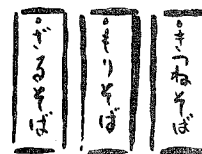 ・きつねそば
・もりそば
・ざるそば